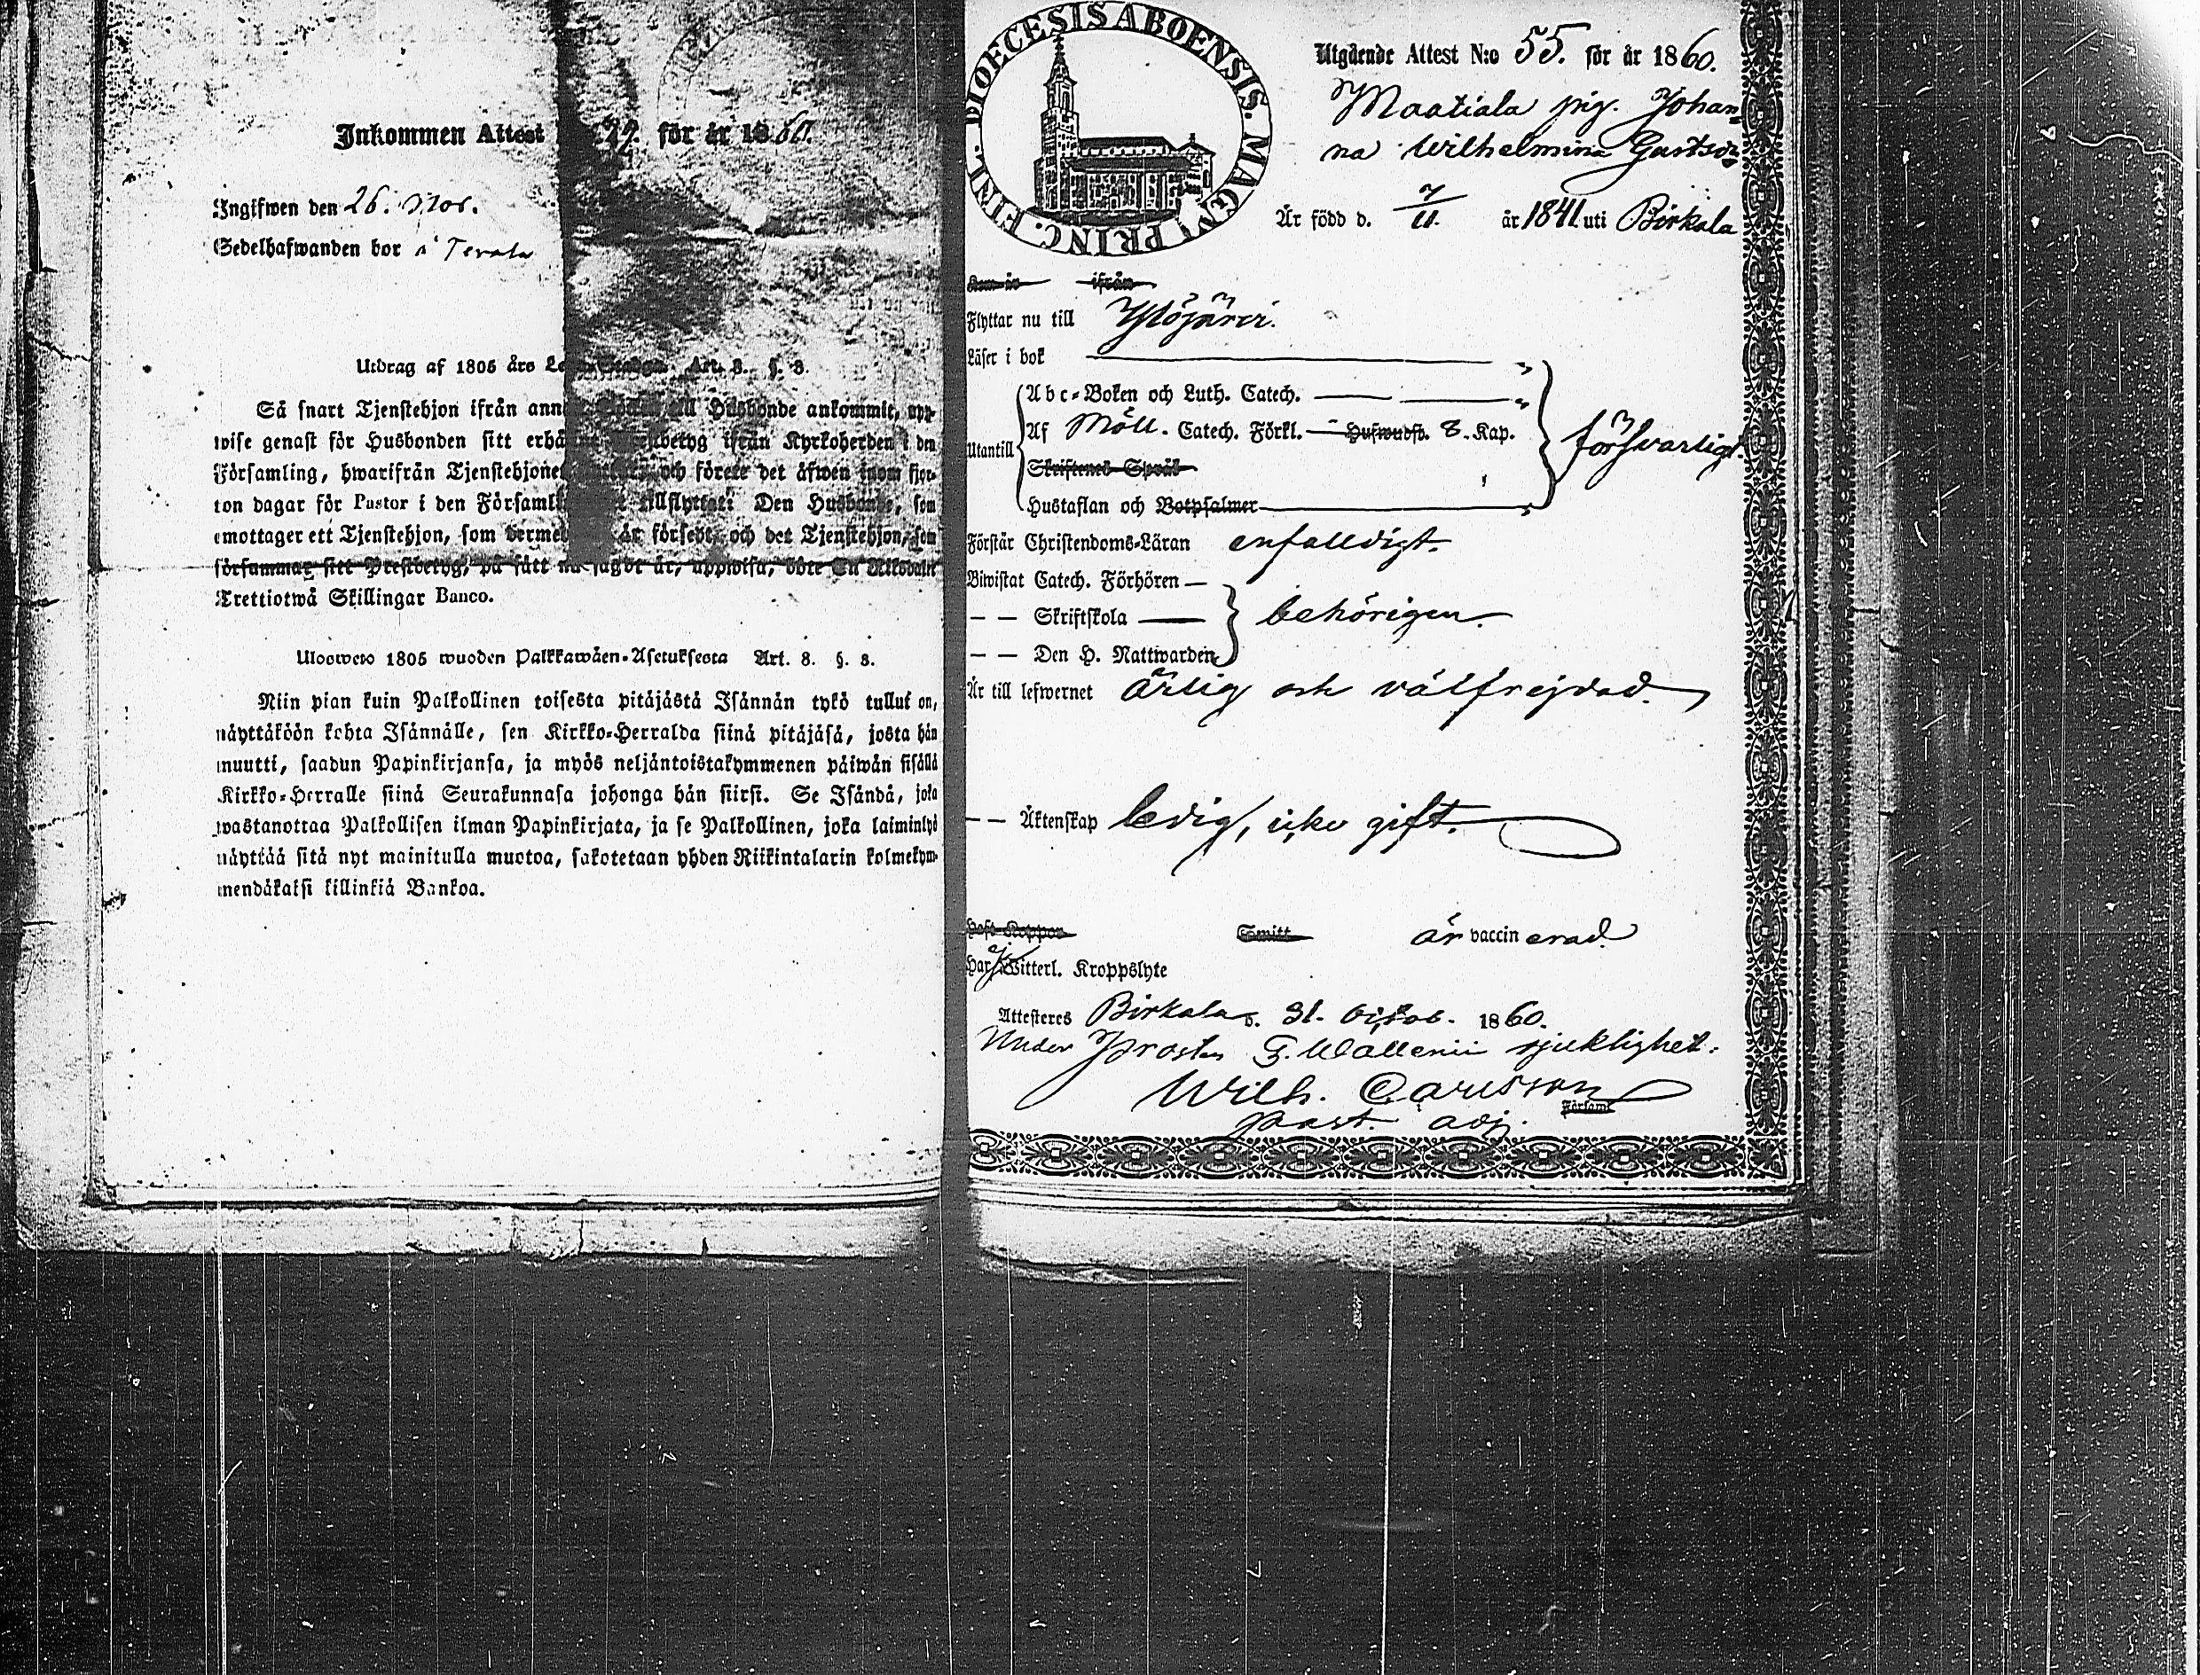 Inkommen Attest 79. för år 1860.
Ingifwen den 26. Nov.
Sedelhafwanden bor å
Utdrag af 1805 års Art. 8. §. 8.
Så snart Tjenstehjon ifrån Husbonde ankommit, upp-
wise genast för Husbonden sitt ifrån Kyrkoherden i den
Församling, hwarifrån och förete det äfwen inom fjor-
ton dagar för Pastor i den tillflyttat: Den Husbonde, som
emottager ett Tjenstehjon, som är försedt, och det Tjenstehjon, som
försummar sitt Prestbetyg, på sätt nu sagdt är, uppwisa, böte En Riksdaler
Trettiotwå Skillingar Banco.
Ulosweto 1805 wuoden Palkkawäen-Asetuksesta Art. 8. §. 8.
Niin pian kuin Palkollinen toisesta pitäjästä Isännän tykö tullut on,
näyttäköön kohta Isännälle, sen Kirkko-Herralda siinä pitäjäsä, josta hän
muutti, saadun Papinkirjansa, ja myös neljäntoistakymmenen päiwän sisällä
Kirkko-Herralle siinä Seurakunnasa johonga hän siirsi. Se Isändä, joka
wastanottaa Palkollisen ilman Papinkirjata, ja se Palkollinen, joka laiminlyö
näyttää sitä nyt mainitulla muotoa, sakotetaan yhden Riikintalarin kolmekym-
mendäkaksi killinkiä Bankoa.
DIOECESIS ABOENSIS. MAGNI PRINC. FINL.
Utgående Attest N:o 55. för år 1860.
Maatiala pig. Johan-
na Wilhelmina
Är född d. 7/11. år 1841 uti Birkala
Kom år ifrån
Flyttar nu till Ylöjärvi.
Läser i bok
Abc-Boken och Luth. Catech.
Utantill Af Möll. Catech. Förkl. Hufwudst. 8. Kap. försvarligt.
Skriftenes Språk
Hustaflan och Botpsalmer
Förstår Christendoms-Läran enfalldigt.
Biwistat Catech. Förhören
— — Skriftskola behörigen.
— — Den H. Nattwarden
Är till lefwernet ärlig och välfrejdad.
— — Äktenskap ledig, icke gift.
Haft Koppor Smitt är vaccinerad.
Har Witterl. Kroppslyte
Attesteres Birkala d. 31. 1860.
Under Prosten F. Wallenii sjuklighet:
Wilh. Carlsson
Församl.
past. adj.